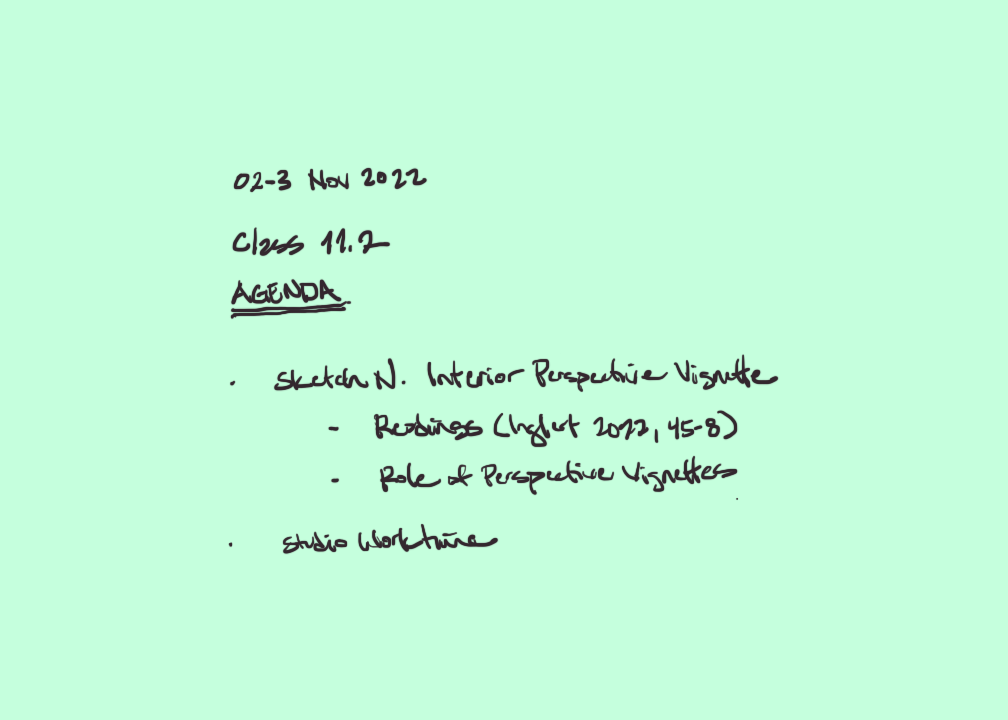 02-3 Nov 2022
Class 11.2
AGENDA
· Sketch N. Interior Perspective Vignette
- Readings ( 2022, 45-8)
- Role of Perspective Vignettes
· Studio Worktime